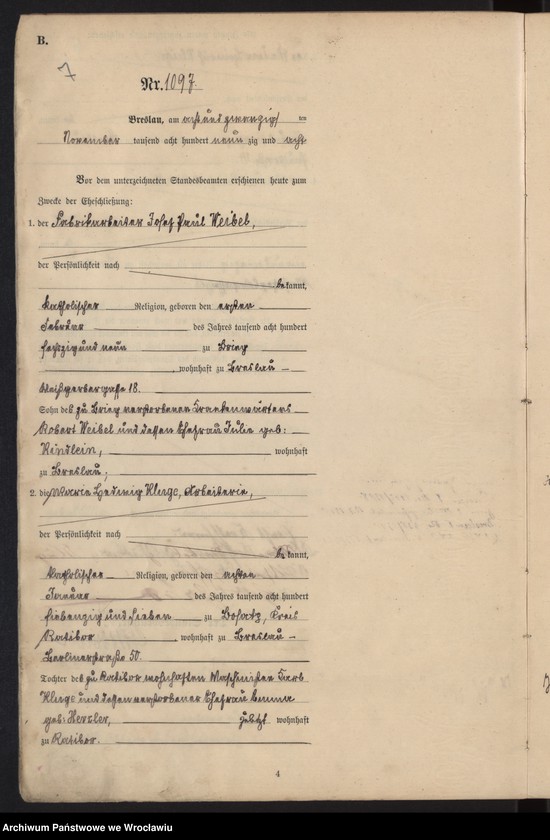 B.
7
Nr. 1097.
Breslau, am acht und zwanzig ten
November tausend acht hundert neun zig und acht
Vor dem unterzeichneten Standesbeamten erschienen heute zum
Zwecke der Eheschließung:
1. der Fabrikarbeiter Josef Paul Weibel,
der Persönlichkeit nach
be kannt,
katholischer Religion, geboren den ersten
Februar des Jahres tausend acht hundert
sechzig und neun zu Brieg
, wohnhaft zu Breslau –
Weißgerbergasse 18.
Sohn des zu Brieg verstorbenen Krankenwärters
Robert Weibel und dessen Ehefrau Julie geb:
Kindlein, wohnhaft
zu Breslau;
2. die Marie Hedwig Kluge, Arbeiterin,
der Persönlichkeit nach
be kannt,
katholischer Religion, geboren den achten
Januar des Jahres tausend acht hundert
siebenzig und sieben zu Bosatz, Kreis
Ratibor, wohnhaft zu Breslau –
Berlinerstraße 50.
Tochter des zu Ratibor wohnhaften Maschinisten
Kluge und dessen verstorbener Ehefrau Emma
geb: zuletzt wohnhaft
zu Ratibor.
4
Archiwum Państwowe we Wrocławiu